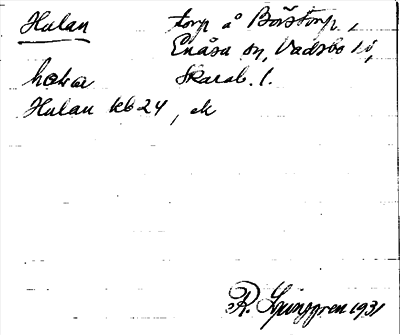 Hulan torp å Börstorp,
Enåsa sn, Vadsbo hd,
Skarab. l.
Hulan kb 24, ek
R. Ljunggren 1931